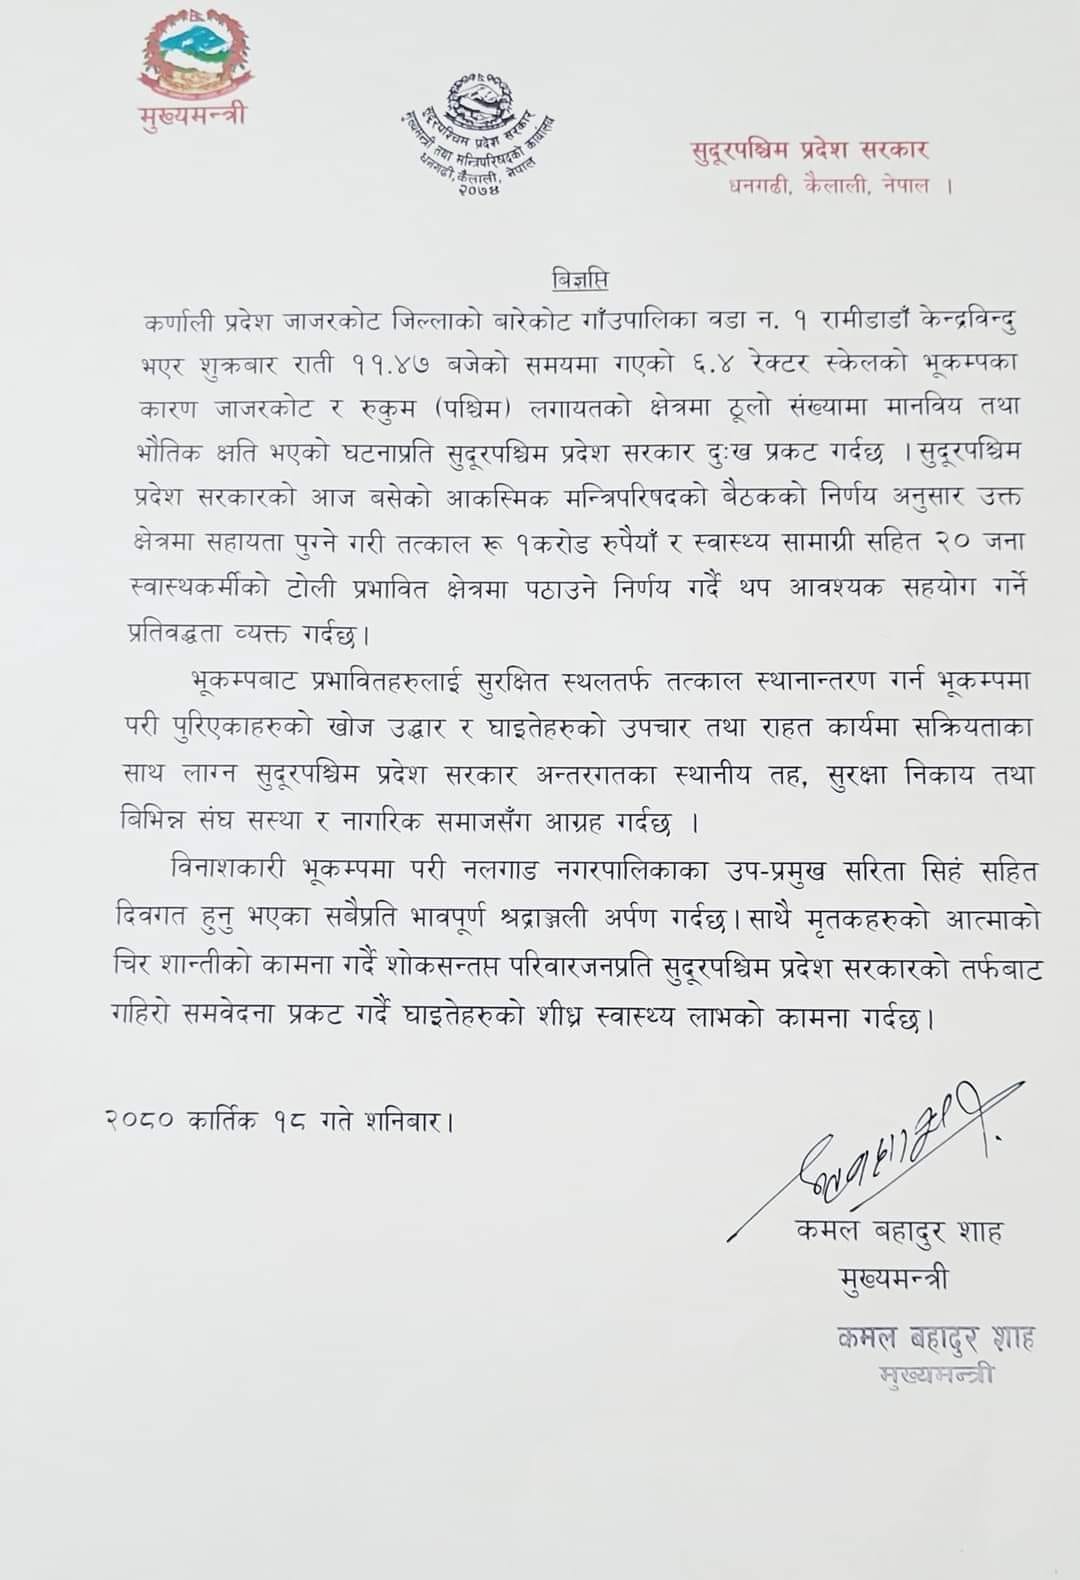 मुख्यमन्त्री
सुदूरपश्चिम प्रदेश सरकार
मुख्यमन्त्री तथा मन्त्रिपरिषद्को कार्यालय
धनगढी, कैलाली, नेपाल
२०७४
सुदूरपश्चिम प्रदेश सरकार
धनगढी, कैलाली, नेपाल ।
बिज्ञप्ति
कर्णाली प्रदेश जाजरकोट जिल्लाको बारेकोट गाँउपालिका वडा न. १ रामीडाडाँ केन्द्रविन्दु
भएर शुक्रबार राती ११.४७ बजेको समयमा गएको ६.४ रेक्टर स्केलको भूकम्पका
कारण जाजरकोट र रुकुम (पश्चिम) लगायतको क्षेत्रमा ठूलो संख्यामा मानविय तथा
भौतिक क्षति भएको घटनाप्रति सुदूरपश्चिम प्रदेश सरकार दुःख प्रकट गर्दछ । सुदूरपश्चिम
प्रदेश सरकारको आज बसेको आकस्मिक मन्त्रिपरिषदको बैठकको निर्णय अनुसार उक्त
क्षेत्रमा सहायता पुग्ने गरी तत्काल रू १करोड रुपैयाँ र स्वास्थ्य सामाग्री सहित २० जना
स्वास्थकर्मीको टोली प्रभावित क्षेत्रमा पठाउने निर्णय गर्दै थप आवश्यक सहयोग गर्ने
प्रतिवद्धता व्यक्त गर्दछ।
भूकम्पबाट प्रभावितहरुलाई सुरक्षित स्थलतर्फ तत्काल स्थानान्तरण गर्न भूकम्पमा
परी पुरिएकाहरुको खोज उद्धार र घाइतेहरुको उपचार तथा राहत कार्यमा सक्रियताका
साथ लाग्न सुदूरपश्चिम प्रदेश सरकार अन्तरगतका स्थानीय तह, सुरक्षा निकाय तथा
बिभिन्न संघ सस्था र नागरिक समाजसँग आग्रह गर्दछ ।
विनाशकारी भूकम्पमा परी नलगाड नगरपालिकाका उप-प्रमुख सरिता सिहं सहित
दिवगत हुनु भएका सबैप्रति भावपूर्ण श्रद्राञ्जली अर्पण गर्दछ। साथै मृतकहरुको आत्माको
चिर शान्तीको कामना गर्दै शोकसन्तप्त परिवारजनप्रति सुदूरपश्चिम प्रदेश सरकारको तर्फबाट
गहिरो समवेदना प्रकट गर्दै घाइतेहरुको शीध्र स्वास्थ्य लाभको कामना गर्दछ।
२०८० कार्तिक १८ गते शनिबार।
कमल बहादुर शाह
मुख्यमन्त्री
कमल बहादुर शाह
मुख्यमन्त्री